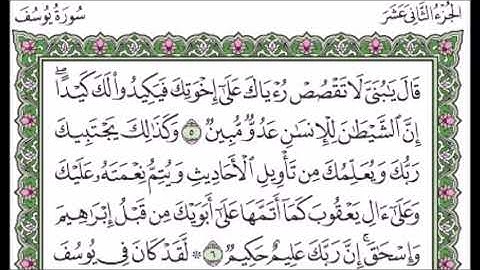 الجزء الثاني عشر
سورة يوسف
قَالَ يَٰبُنَيَّ لَا تَقْصُصْ رُءْيَاكَ عَلَىٰٓ إِخْوَتِكَ فَيَكِيدُوا۟ لَكَ كَيْدًا ۖ
إِنَّ ٱلشَّيْطَٰنَ لِلْإِنسَٰنِ عَدُوٌّ مُّبِينٌ ٥ وَكَذَٰلِكَ يَجْتَبِيكَ
رَبُّكَ وَيُعَلِّمُكَ مِن تَأْوِيلِ ٱلْأَحَادِيثِ وَيُتِمُّ نِعْمَتَهُۥ عَلَيْكَ
وَعَلَىٰٓ ءَالِ يَعْقُوبَ كَمَآ أَتَمَّهَا عَلَىٰٓ أَبَوَيْكَ مِن قَبْلُ إِبْرَٰهِيمَ
وَإِسْحَٰقَ ۚ إِنَّ رَبَّكَ عَلِيمٌ حَكِيمٌ ٦ ۞ لَّقَدْ كَانَ فِى يُوسُفَ